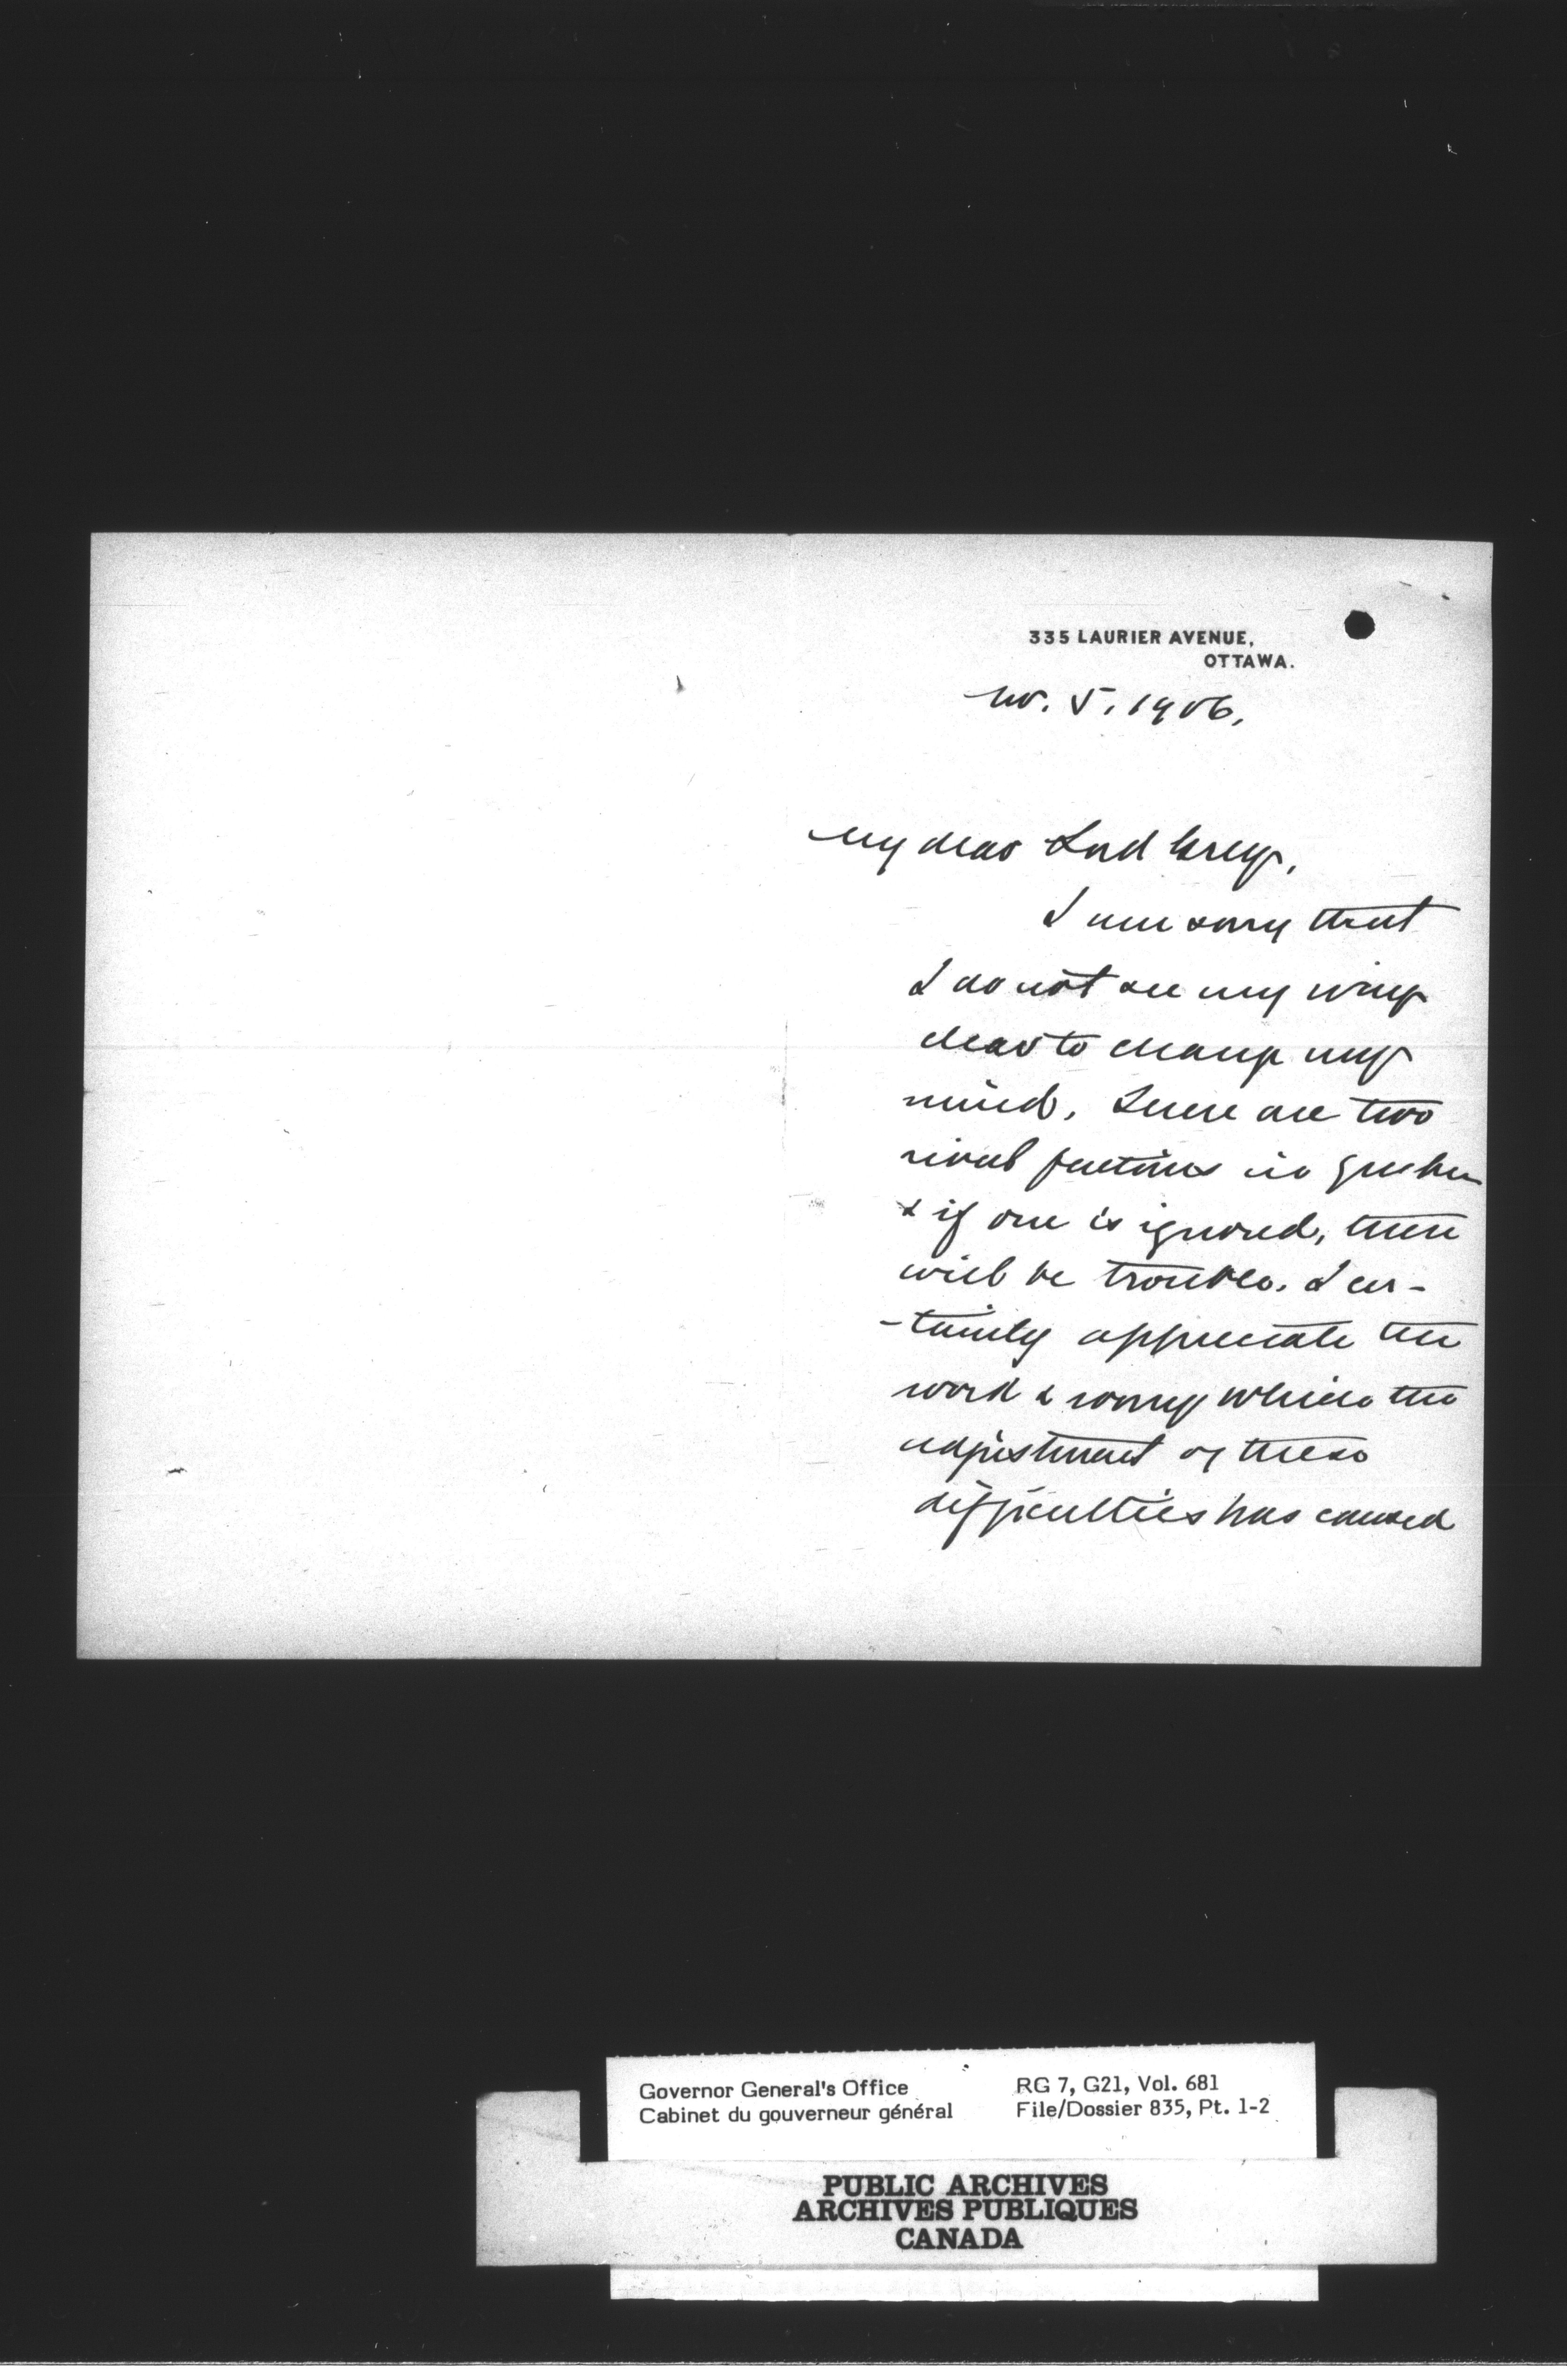 335 LAURIER AVENUE,
OTTAWA.
Nov. 5. 1906.
My dear Lord Grey,
I am sorry that
I do not see my way
clear to change my
mind. There are two
rival factions in Quebec
& if one is ignored, there
will be trouble. I cer-
-tainly appreciate the
work & worry which the
adjustment of these
difficulties has caused
Governor General's Office
Cabinet du gouverneur général
RG 7, G21, Vol. 681
File/Dossier 835, Pt. 1-2
PUBLIC ARCHIVES
ARCHIVES PUBLIQUES
CANADA